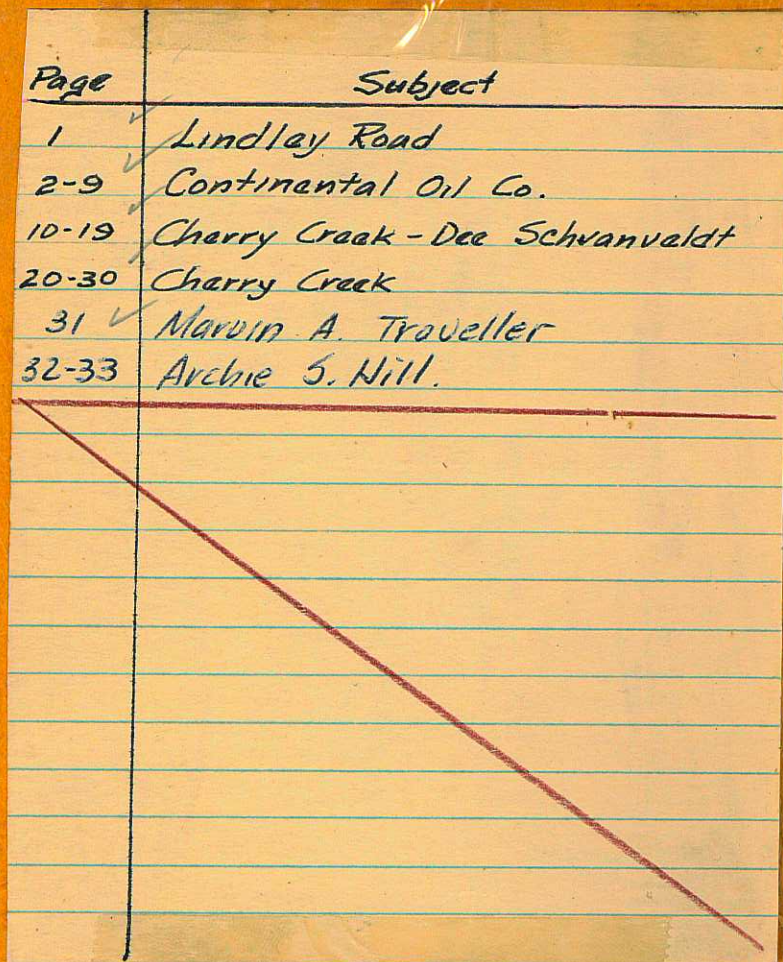 Page Subject
1 Lindley Road
2-9 Continental Oil Co.
10-19 Cherry Creek - Dee Schvanveldt
20-30 Cherry Creek
31 Marvin A. Traveller
32-33 Archie S. Hill.